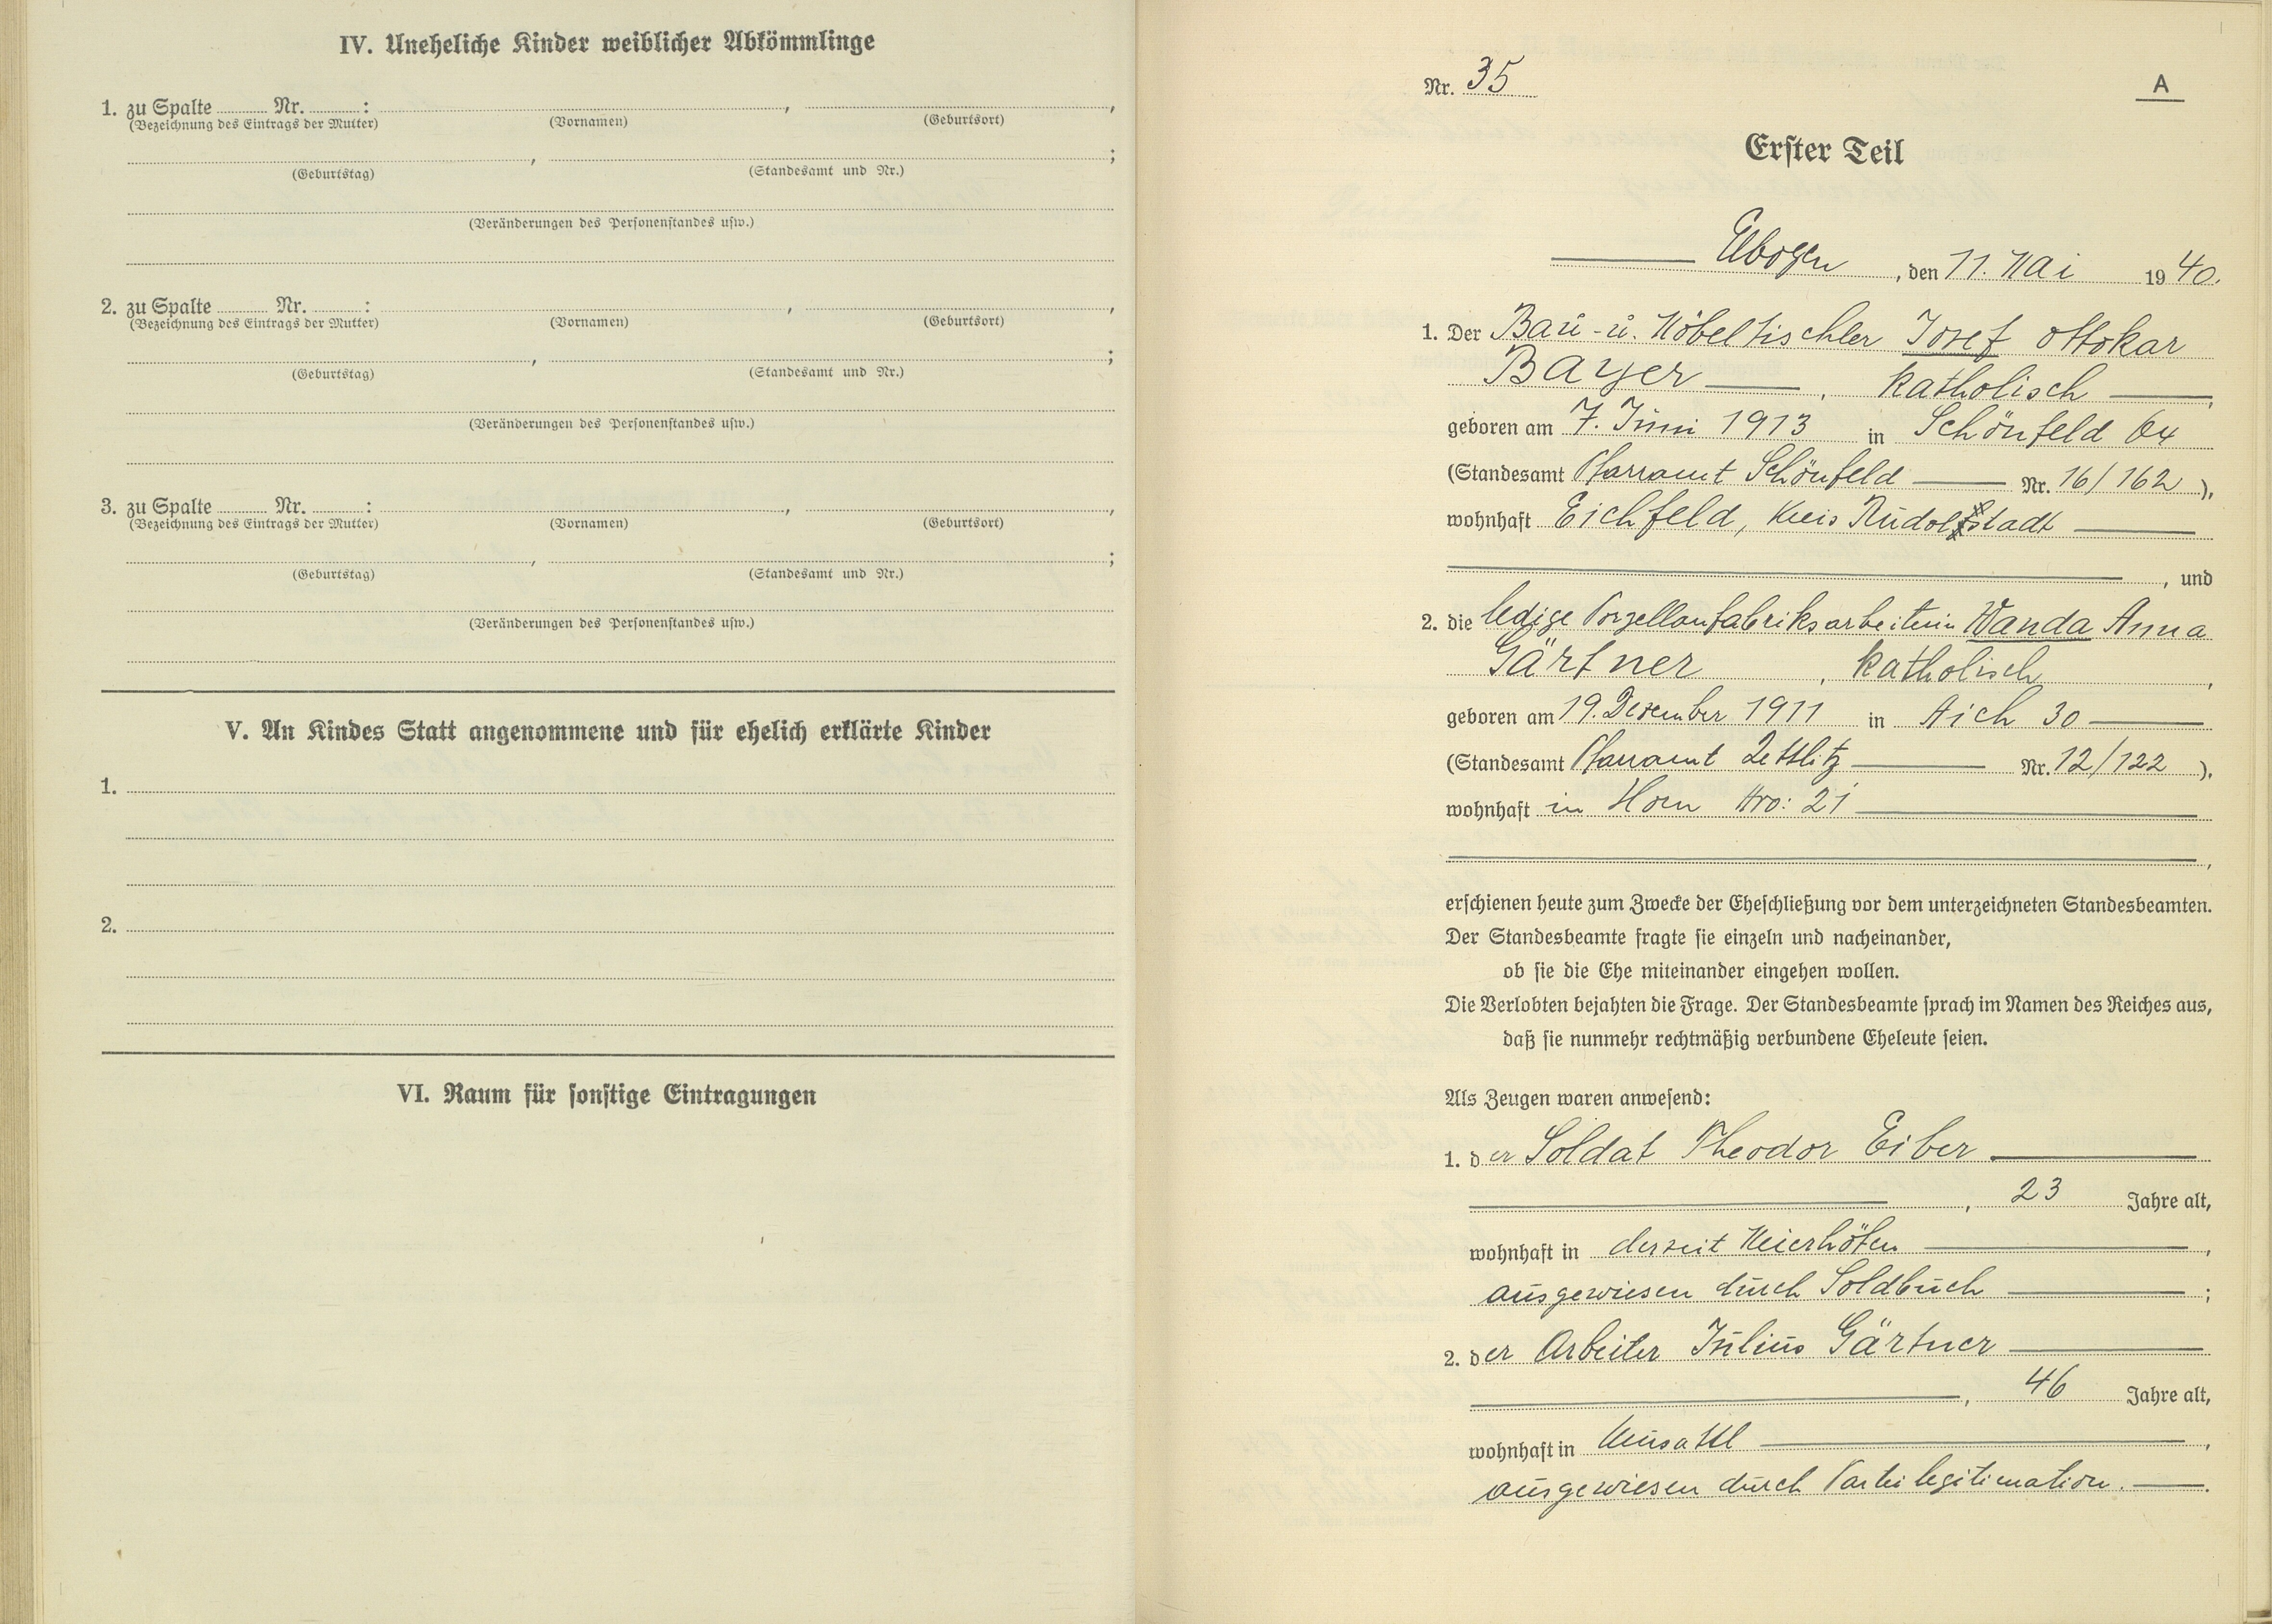 IV. Uneheliche Kinder weiblicher Abkömmlinge
1. zu Spalte Nr. : , ,
(Bezeichnung des Eintrags der Mutter) (Vornamen) (Geburtsort)
, ;
(Geburtstag) (Standesamt und Nr.)
(Veränderungen des Personenstandes usw.)
2. zu Spalte Nr. : , ,
(Bezeichnung des Eintrags der Mutter) (Vornamen) (Geburtsort)
, ;
(Geburtstag) (Standesamt und Nr.)
(Veränderungen des Personenstandes usw.)
3. zu Spalte Nr. : , ,
(Bezeichnung des Eintrags der Mutter) (Vornamen) (Geburtsort)
, ;
(Geburtstag) (Standesamt und Nr.)
(Veränderungen des Personenstandes usw.)
V. An Kindes Statt angenommene und für ehelich erklärte Kinder
1.
2.
VI. Raum für sonstige Eintragungen
Nr. 35 A
Erster Teil
Elbogen, den 11. Mai 1940.
1. Der Bau- u. Möbeltischler Josef Ottokar
Bayer, katholisch,
geboren am 7. Juni 1913 in Schönfeld 64
(Standesamt Pfarramt Schönfeld Nr. 16/162),
wohnhaft Eichfeld, Kreis Rudolfstadt
, und
2. die ledige Porzellanfabriksarbeiterin Wanda Anna
Gärtner, katholisch,
geboren am 19. Dezember 1911 in Aich 30
(Standesamt Pfarramt Zettlitz Nr. 12/122),
wohnhaft in Horn Nro: 21
,
erschienen heute zum Zwecke der Eheschließung vor dem unterzeichneten Standesbeamten.
Der Standesbeamte fragte sie einzeln und nacheinander,
ob sie die Ehe miteinander eingehen wollen.
Die Verlobten bejahten die Frage. Der Standesbeamte sprach im Namen des Reiches aus,
daß sie nunmehr rechtmäßig verbundene Eheleute seien.
Als Zeugen waren anwesend:
1. der Soldat Theodor Eiber
, 23 Jahre alt,
wohnhaft in derzeit Meierhöfen,
ausgewiesen durch Soldbuch;
2. der Arbeiter Julius Gärtner
, 46 Jahre alt,
wohnhaft in Neusattl,
ausgewiesen durch Parteilegitimation.